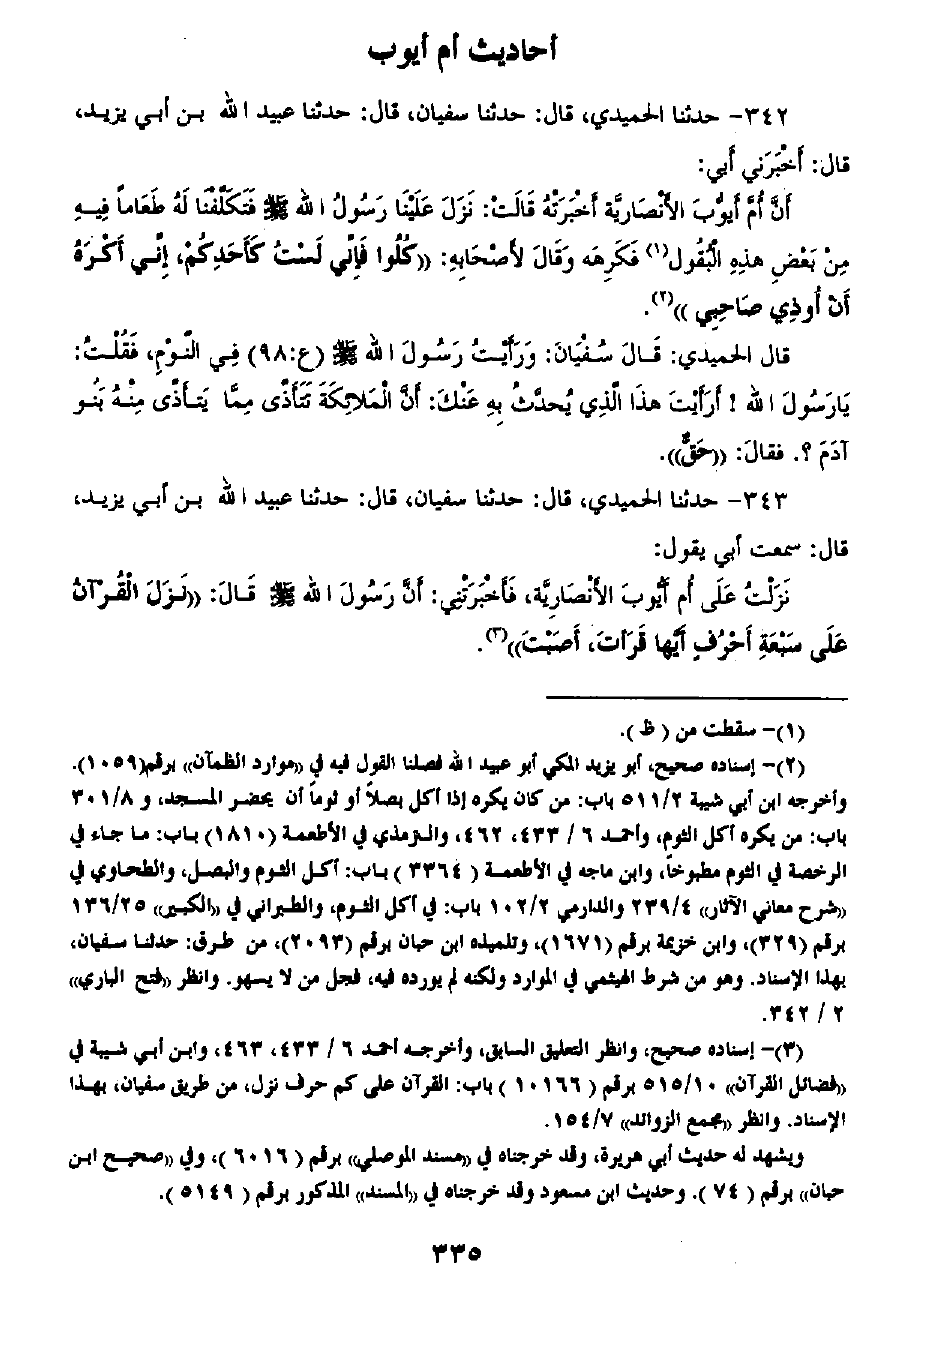 أحاديث أم أيوب
٣٤٢- حدثنا الحميدي، قال: حدثنا سفيان، قال: حدثنا عبيد الله بن أبي يزيد،
قال: أَخْبَرَني أَبي:
أَنَّ أُمَّ أَيوُّبَ الأَنْصَارِيَّةَ أَخْبَرَتْهُ قَالَتْ: نَزَلَ عَلَيْنَا رَسُولُ الله ﷺ فَتَكَلَّفْنَا لَهُ طَعَاماً فِيهِ
مِنْ بَعْضِ هذِهِ الْبُقُولِ(١) فَكَرِهَه وَقَالَ لأَصْحَابِهِ: ((كُلُوا فَإِنِّي لَسْتُ كَأَحَدِكُمْ، إِنِّي أَكْرَهُ
أَنْ أُوذِي صَاحِبِي ))(٢).
قال الحميدي: قَالَ سُفْيَانَ: وَرَأَيْتُ رَسُولَ الله ﷺ (ع:٩٨) فِي النَّوْمِ، فَقُلْتُ:
يَارَسُولَ الله ! أَرَأَيْتَ هذَا الَّذِي يُحَدَّثُ بِهِ عَنْكَ: أَنَّ الْمَلائِكَةَ تَتَأَذَّى مِمَّا يَتَأَذَّى مِنْهُ بَنُو
آدَمَ ؟. فقالَ: ((حَقٌّ)).
٣٤٣- حدثنا الحميدي، قال: حدثنا سفيان، قال: حدثنا عبيد الله بن أبي يزيد،
قال: سمعت أبي يقول:
نَزَلْتُ عَلَى أُم أَيُّوبَ الأَنْصَارِيَّة، فَأَخْبَرَتْنِي: أَنَّ رَسُولَ الله ﷺ قَالَ: ((نَزَلَ الْقُرْآنُ
عَلَى سَبْعَةِ أَحْرُفٍ أَيَّها قَرَأتَ، أَصَبْتَ))(٣).
(١)- سقطت من ( ظ ).
(٢)- إسناده صحيح، أبو يزيد المكي أبو عبيد الله فصلنا القول فيه في «موارد الظمآن» برقم(١٠٥٩).
وأخرجه ابن أبي شيبة ٥١١/٢ باب: من كان يكره إذا أكل بصلاً أو ثوماً أن يحضر المسجد، و ٣٠١/٨
باب: من يكره أكل الثوم، وأحمد ٦ / ٤٣٣، ٤٦٢، والترمذي في الأطعمة (١٨١٠) باب: ما جاء في
الرخصة في الثوم مطبوخاً، وابن ماجه في الأطعمة ( ٣٣٦٤ ) باب: أكل الثوم والبصل، والطحاوي في
«شرح معاني الآثار» ٢٣٩/٤ والدارمي ١٠٢/٢ باب: في أكل الثوم، والطبراني في «الكبير» ١٣٦/٢٥
برقم (٣٢٩)، وابن خزيمة برقم (١٦٧١)، وتلميذه ابن حبان برقم (٢٠٩٣)، من طرق: حدثنا سفيان،
بهذا الإسناد. وهو من شرط الهيثمي في الموارد ولكنه لم يورده فيه، فجل من لا يسهو. وانظر «فتح الباري»
٢ / ٣٤٢.
(٣)- إسناده صحيح، وانظر التعليق السابق، وأخرجه أحمد ٦ / ٤٣٣، ٤٦٣، وابن أبي شيبة في
«فضائل القرآن» ٥١٥/١٠ برقم ( ١٠١٦٦ ) باب: القرآن على كم حرف نزل، من طريق سفيان، بهذا
الإسناد. وانظر «مجمع الزوائد» ١٥٤/٧.
ويشهد له حديث أبي هريرة، وقد خرجناه في «مسند الموصلي» برقم ( ٦٠١٦ )، وفي «صحيح ابن
حبان» برقم ( ٧٤ ). وحديث ابن مسعود وقد خرجناه في «المسند» المذكور برقم ( ٥١٤٩ ).
٣٣٥